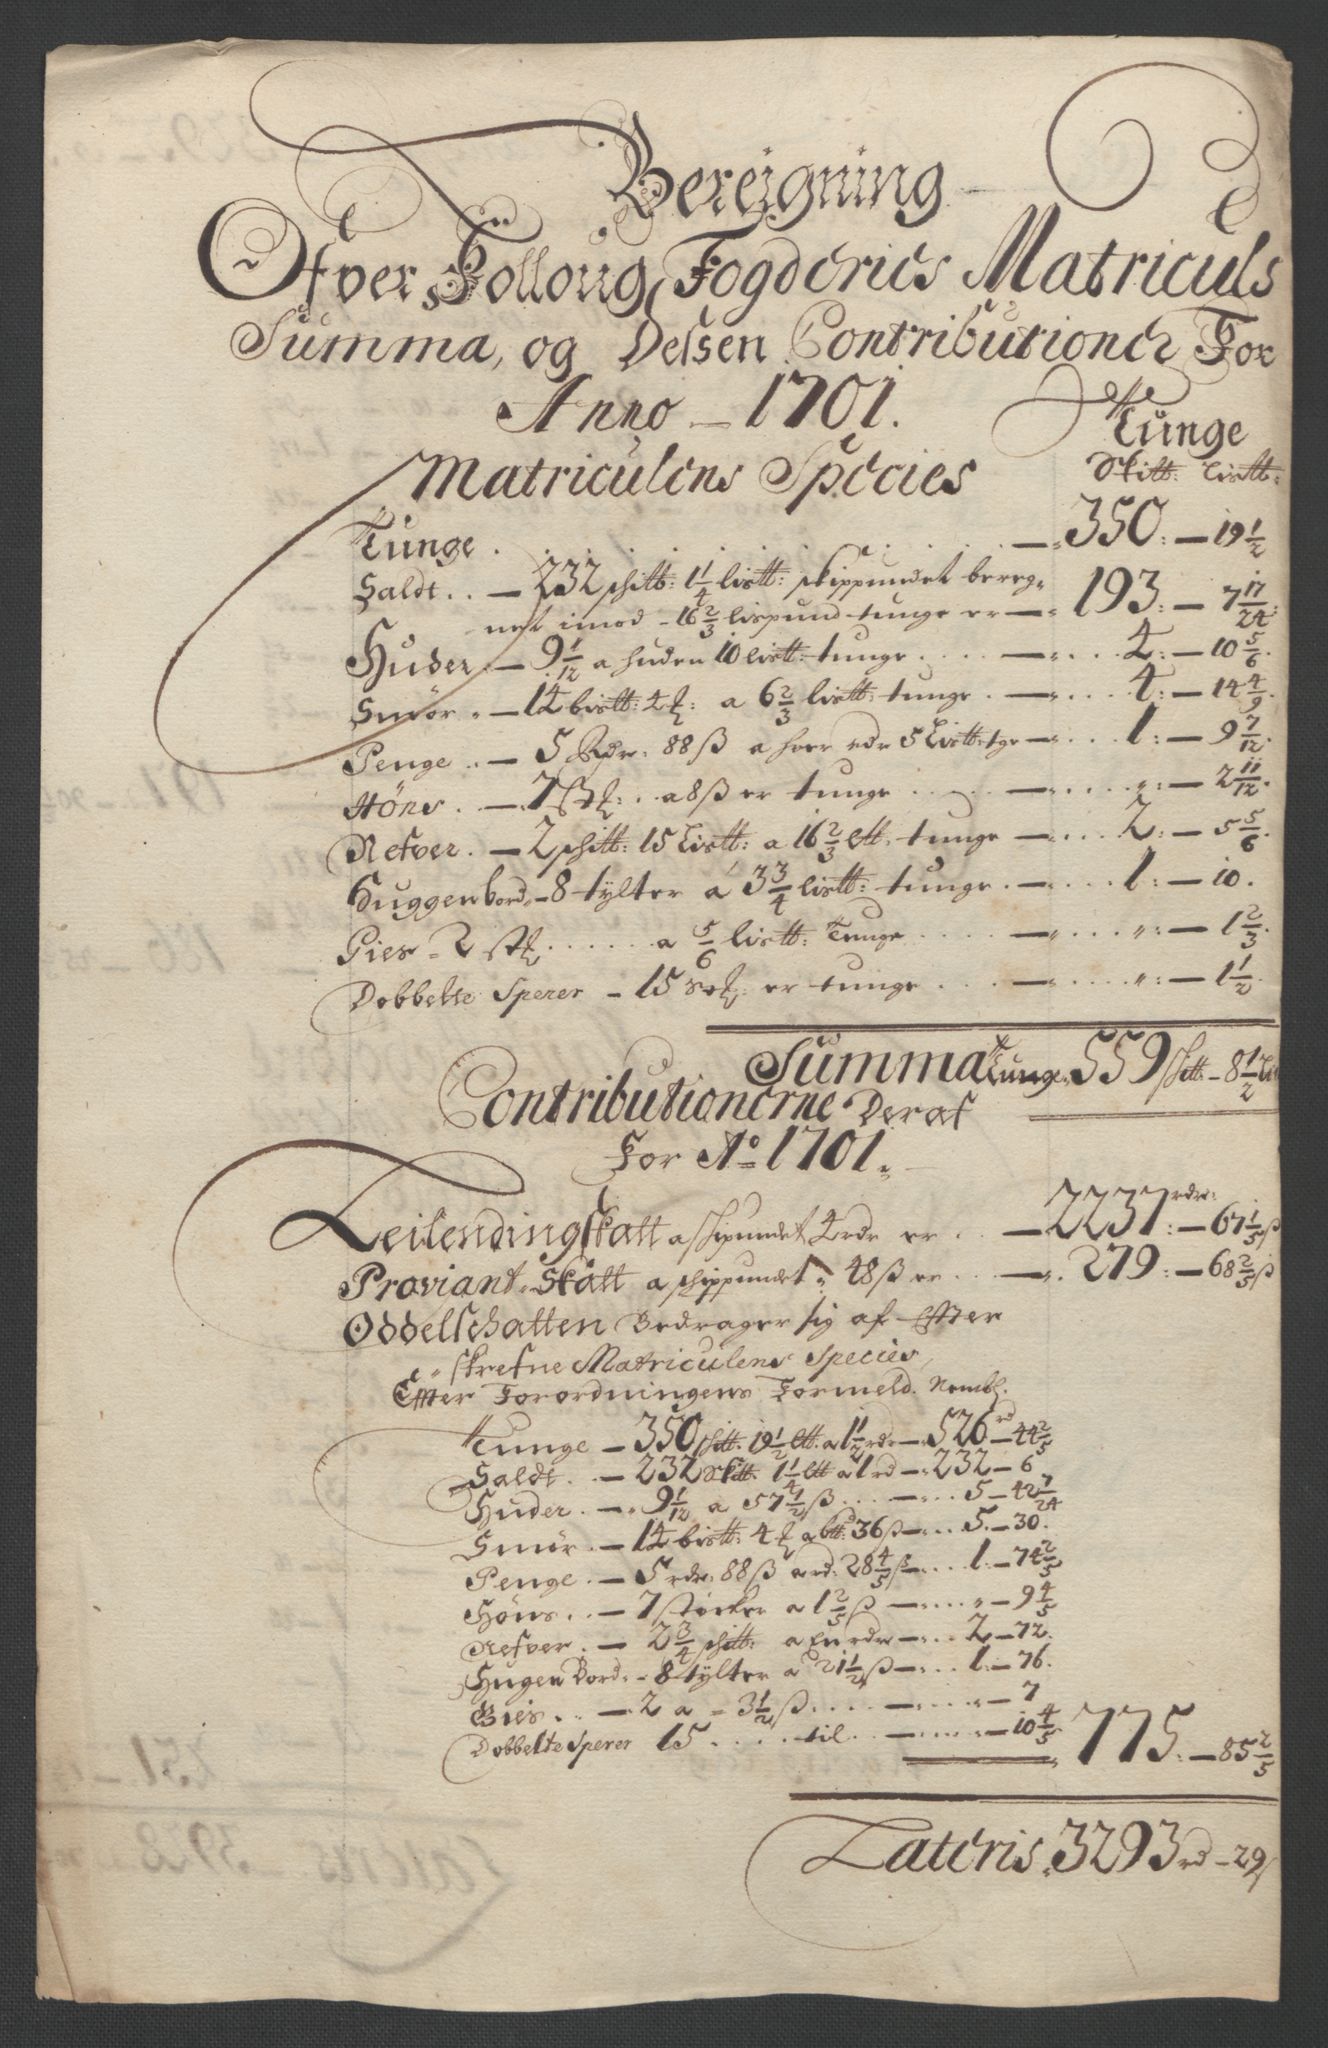 Bereigning
Ofver Folloug Fogderies Matriculs
Summa, og Desen Contributioner For
Anno 1701.
Tunge
Matriculens Species Skitt: Listt:
Tunge . . . . . . . . — 350: — 19 1/2
Saldt . . — 232 skitt: 1 1/4 listt: skippundet bereg-
net imod - 16 2/3 lispund tunge er — 193: — 7 17/24:
Huder — 9 1/12 a huden 10 listt: tunge . . . . — . . . 4: — 10 5/6.
Smör — 14 bistt: 4 : a 6 2/3 listt: tunge . — . . . 4: — 14 4/9.
Penge . . — 5 Rdr: 88 ß a hver rdr 5 Listt: tge — . . . 1: — 9 7/12.
Höns . . — 7 stk: . . a 8 ß er tunge . . . . — . . . " : — 2 11/12.
Refver . — 2 skitt: 15 Listt: a 16 2/3 Ltt. tunge — . . . 2: — 5 5/6.
Huggenbord - 8 tylter á 3 3/4 listt: tunge . — . . . 1: — 10.
Gies - 2 stk . . . . . a 5/6 listt: Tunge . . . . — . . . " : — 1 2/3.
Dobbelte Sperer — 15 stk: er tunge . . . . — . . . " : — 1 1/2.
Summa Tunge 559 skitt - 8 1/2 Lis
Contributionerne Deraf
For Ao 1701.
Leilendingskatt a skipundet 4 rdr er . . — 2237 rdr: — 67 1/5 ß
Proviant-Skatt a schippundet 48 ß er . . . — 279: — 68 2/5 ß
Oddelschatten Bedrager sig af Effter
skrefne Matriculens Species,
Effter Forordningens Formeld. Nembl.
Tunge — 350 skitt. 19 1/2 Ltt. a 1 1/2 rdr — 526 rd — 44 2/5
Saldt . . — 232 Skitt. 1 1/4 Ltt a 1 rd — 232 — 6
Huder . — 9 1/12 a 57 1/2 ß . . . — . . 5 — 42 7/24
Smör . — 14 bistt: 4 a btt: 36 ß — . . 5. — 30.
Penge . — 5 rdr: 88 ß a rd: 28 4/5 ß — . . 1. — 74 2/5
Höns . . — 7 stöcker a 1 2/5 ß — . . " — 9 4/5
Refver . — 2 3/4 skitt: a En rdr — . . 2 — 72.
Hugen Bord: - 8 tylter á 21 1/2 ß — . . 1. — 76.
Gies . . — 2 a - 3 1/2 ß . . . . — . . " — 7
Dobbelte Sperer 15 . . . . til . . — . . " — 10 4/5 775: — 85 2/5
Lateris 3293 rd — 29 ß